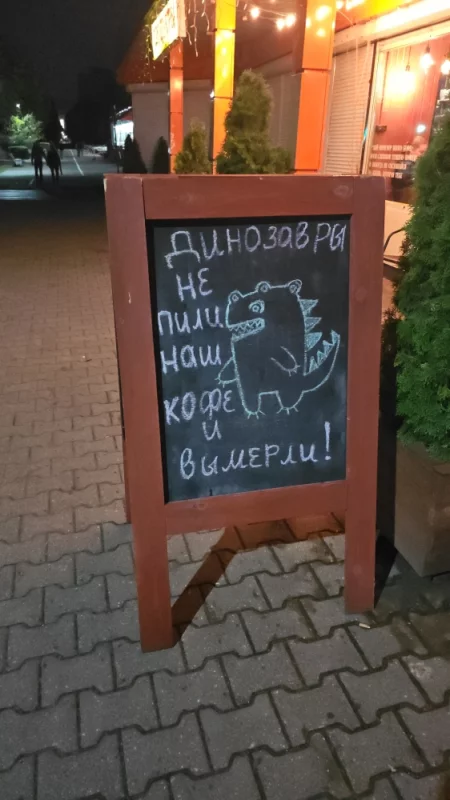 ДИНОЗАВРЫ
НЕ
ПИЛИ
НАШ
КОФЕ
И
ВЫМЕРЛИ!